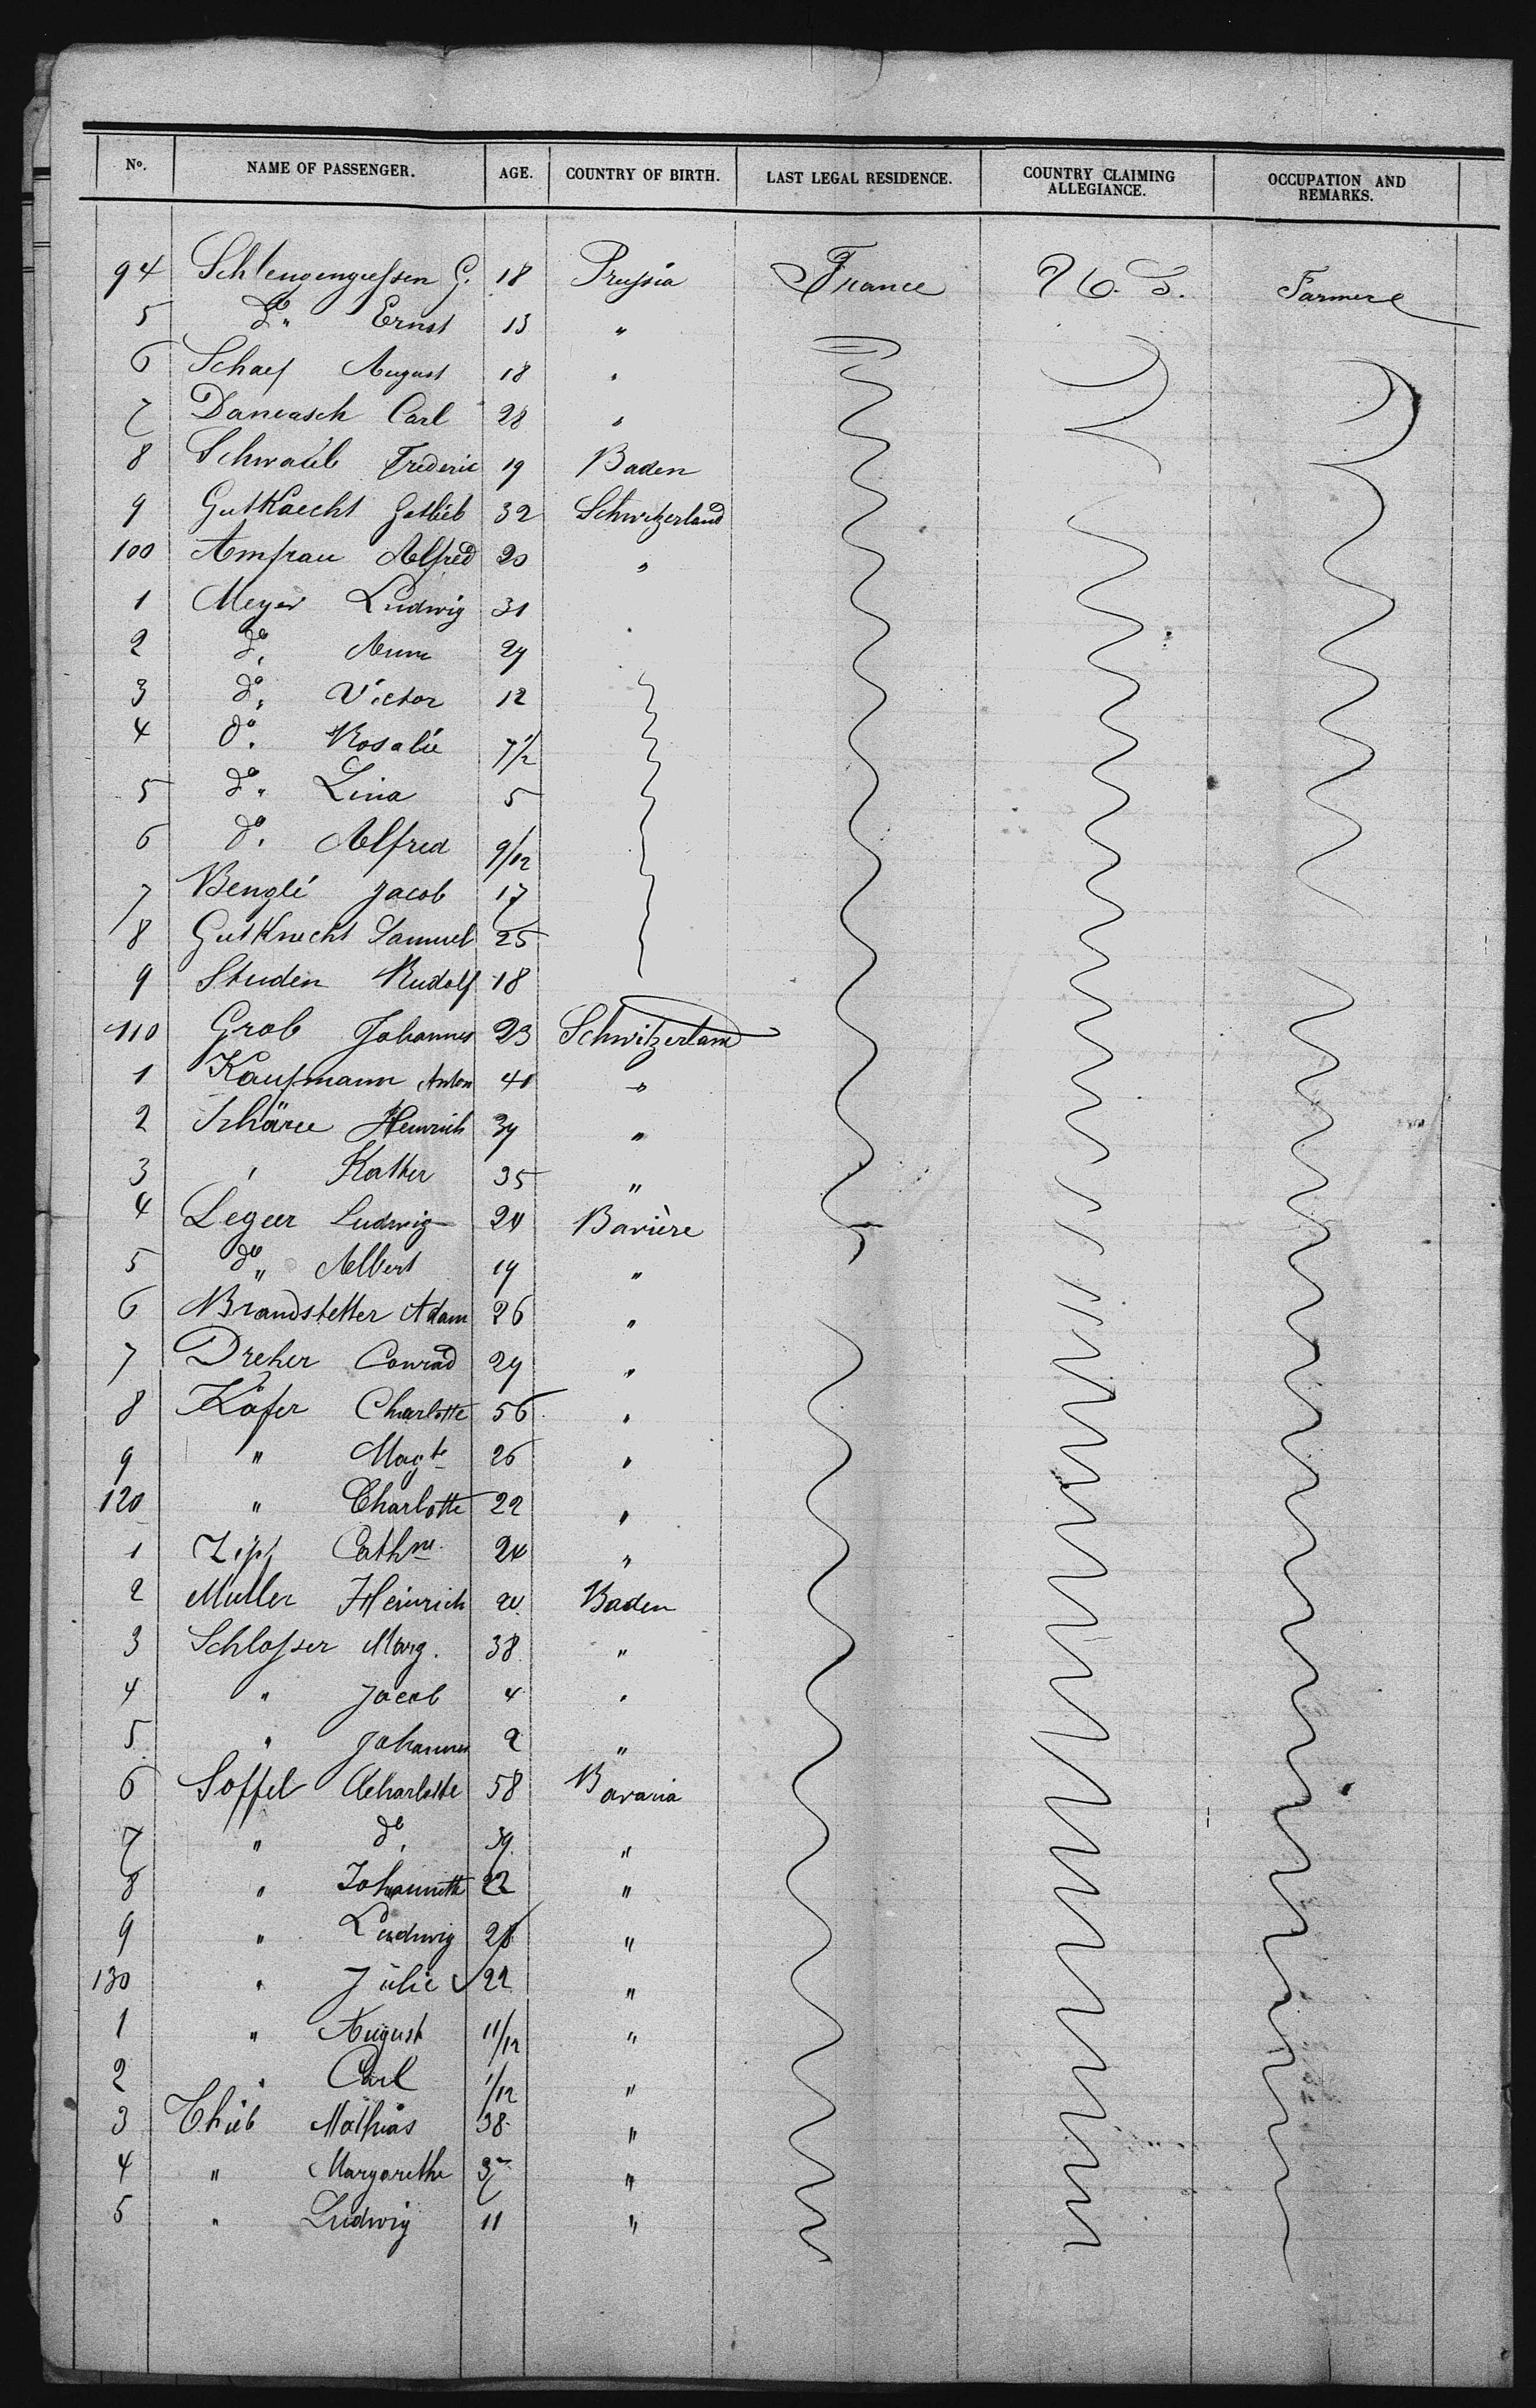 No. NAME OF PASSENGER. AGE. COUNTRY OF BIRTH. LAST LEGAL RESIDENCE. COUNTRY CLAIMING ALLEGIANCE. OCCUPATION AND REMARKS.
94 G. 18 Prussia France U. S. Farmers
5 do " Ernst 13 "
6 August 18 "
7 Carl 28 "
8 Schwaub Frederic 19 Baden
9 Gutknecht Gotlieb 32 Schwitzerland
100 Alfred 20 "
1 Meyer Ludwig 31
2 do " 29
3 do " Victor 12
4 do " Rosalie 7 1/2
5 do " Lina 5
6 do " Alfred 9/12
7 Jacob 17
8 Gutknecht Samuel 25
9 Studen Rudolf 18
110 Grob Johannes 23 Schwitzerland
1 Kaufmann Anton 41 "
2 Heinrich 39 "
3 " 35 "
4 Leger Ludwig 24 Bavière
5 do " Albert 19 "
6 Brandstetter Adam 26 "
7 Dreher Conrad 29 "
8 Käfer Charlotte 56 "
9 " Magte 26 "
120 " Charlotte 22 "
1 Zipf Cathne 24 "
2 Muller Heinrich 20 Baden
3 Schlosser Marg. 38 "
4 " Jacob 4 "
5 " Johannes 2 "
6 Soffel Charlotte 58 Bavaria
7 " do " 39 "
8 " 22 "
9 " Ludwig 28 "
130 " Julie 22 "
1 " August 11/12 "
2 " Carl 1/12 "
3 Mathias 38 "
4 " Margarethe 37 "
5 " Ludwig 11 "